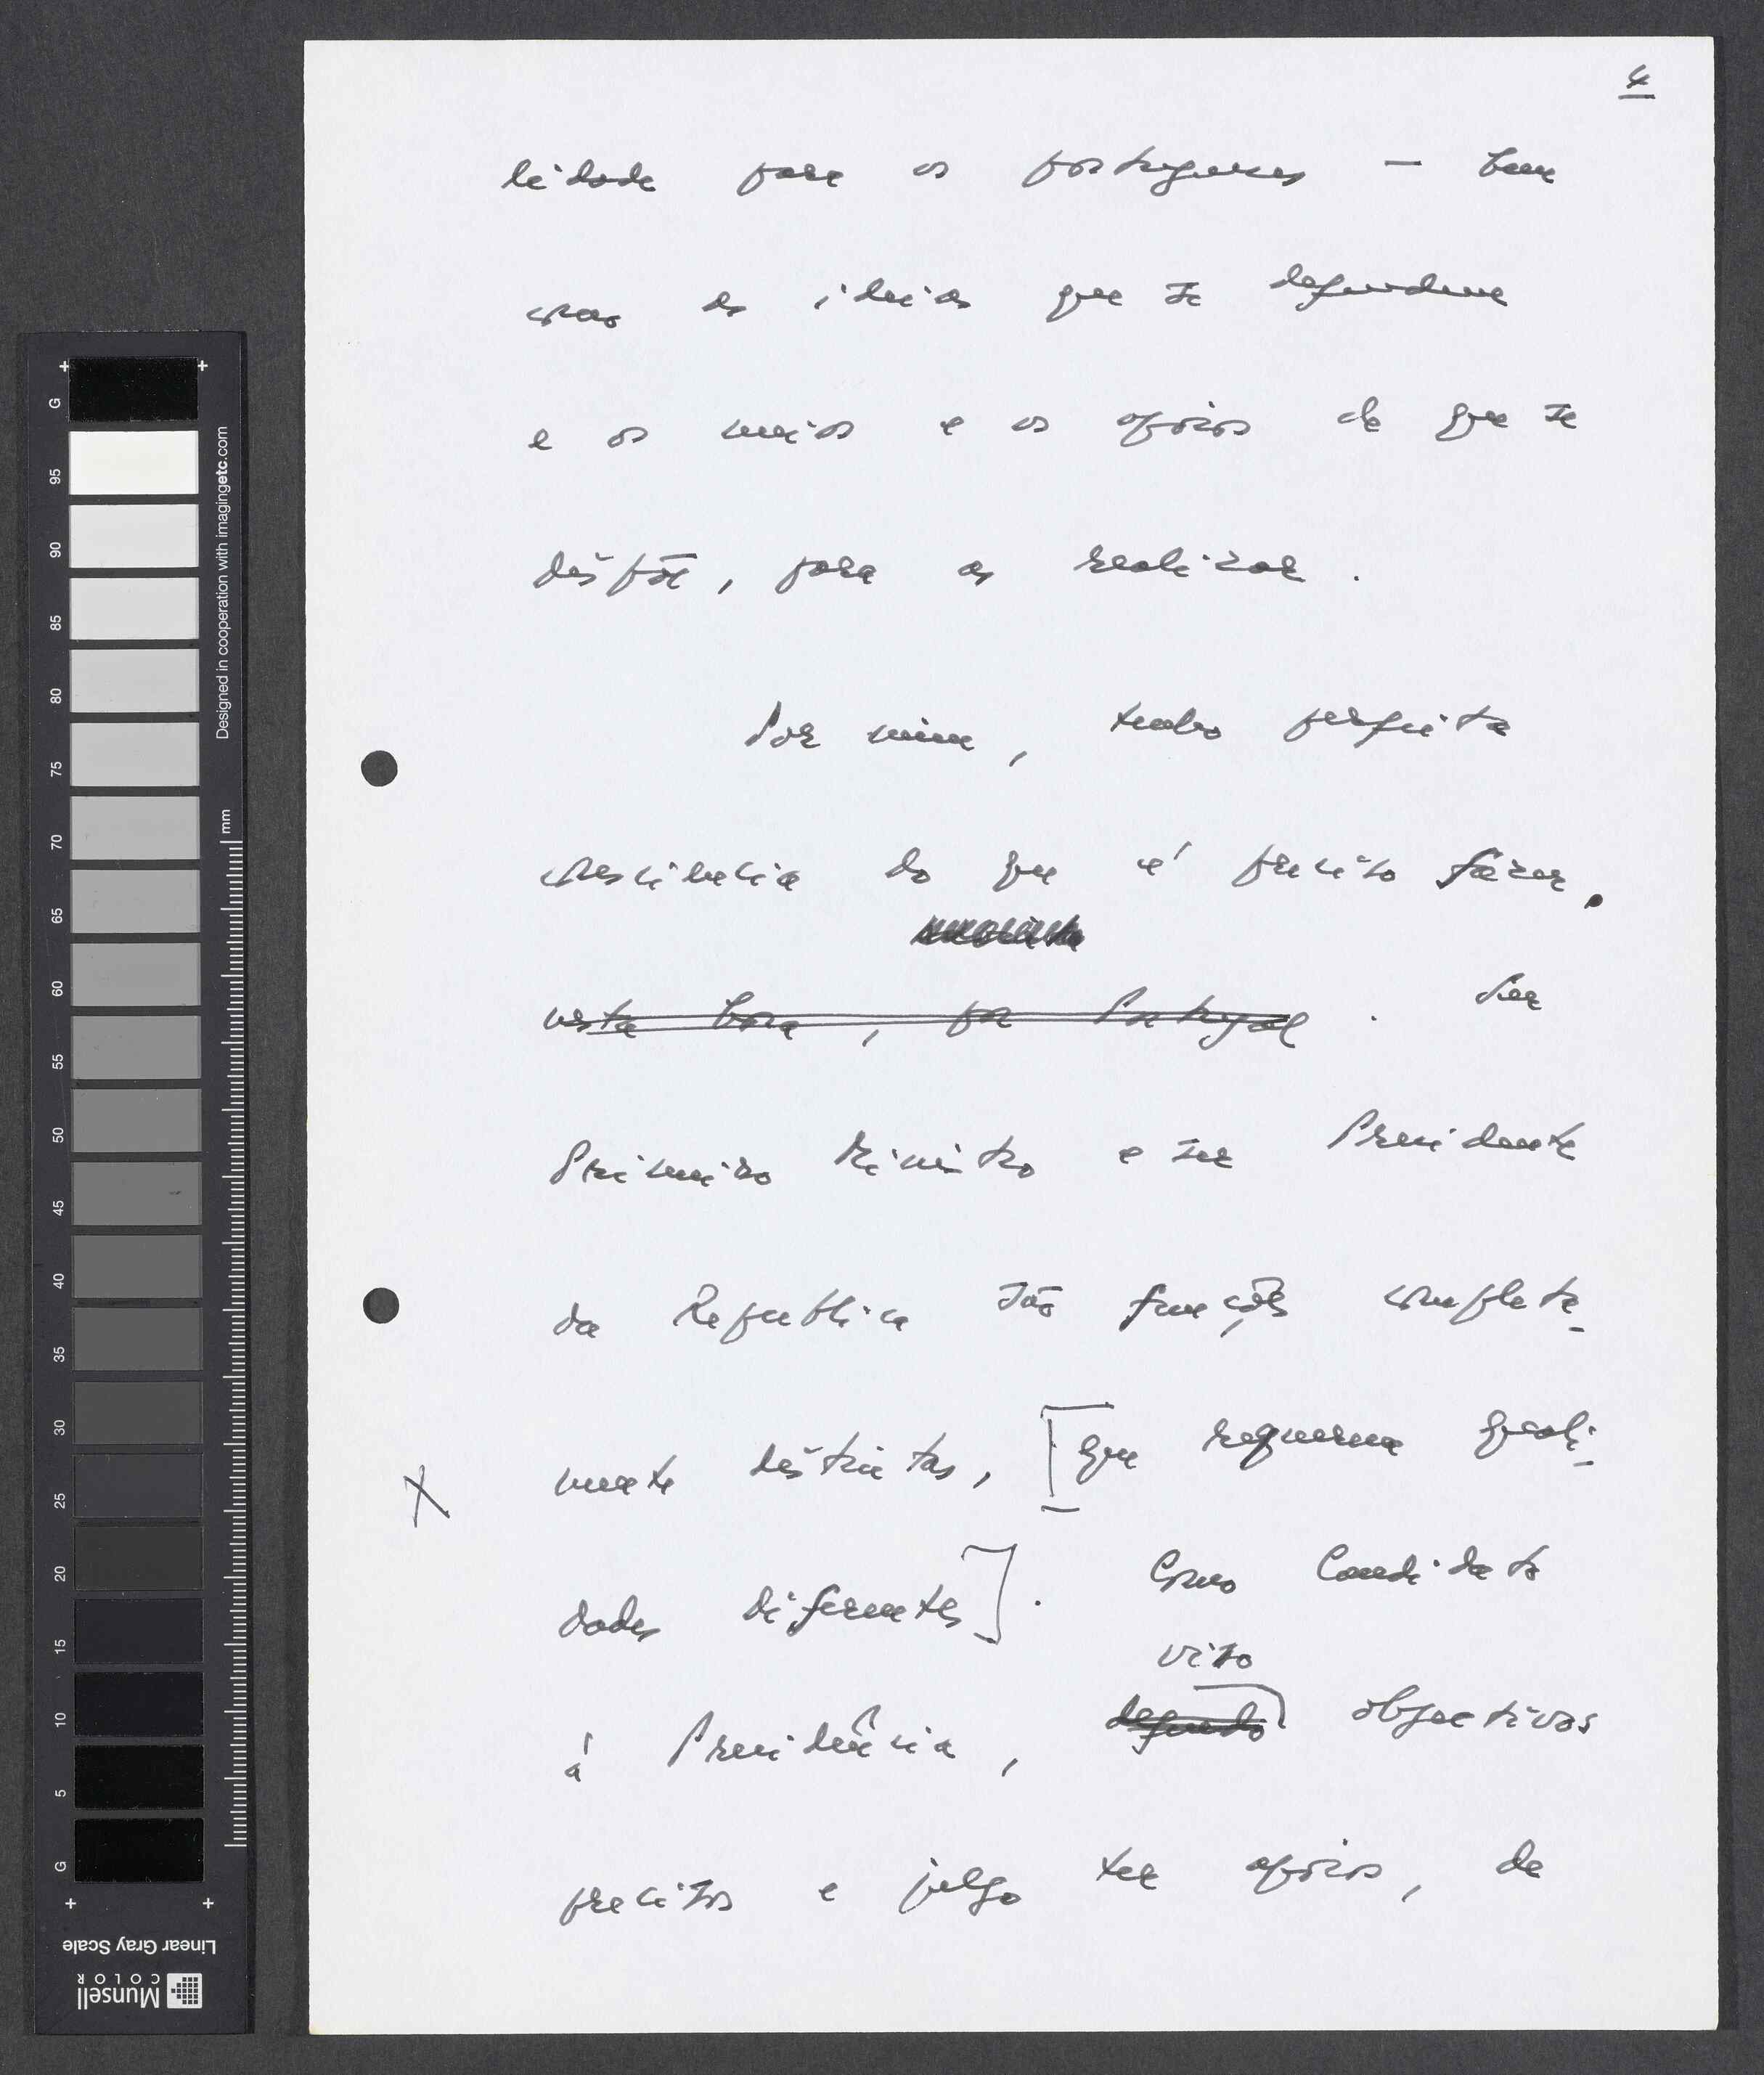 4
lidade para os portugueses — bem
como as ideias que se defendem
e os meios e os apoios de que se
dispõe, para as realizar.
Por mim, tenho perfeita
consciência do que é preciso fazer.
nesta hora, por Portugal. Ser
Primeiro Ministro e ser Presidente
da Republica são funções completa-
mente distintas, [que requerem quali-
X
dades diferentes]. Como Candidato
viso
à Presidência, defendo objectivos
precisos e julgo ter apoios, de
G 95 90 85 80 75 70 65 60 55 50 45 40 35 30 25 20 15 10 5 G
Designed in cooperation with imagingetc.com
mm
Linear Gray Scale
Munsell
COLOR